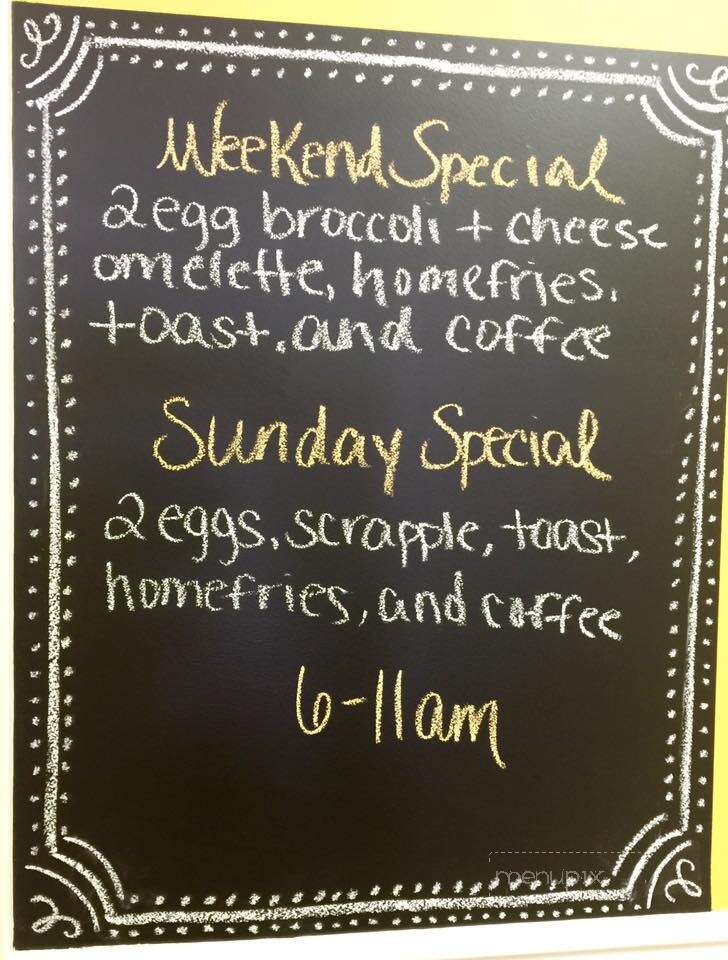 Weekend Special
2 egg broccoli + cheese
omelette, homefries,
toast, and coffee
Sunday Special
2 eggs, scrapple, toast,
homefries, and coffee
6-11am
menupix